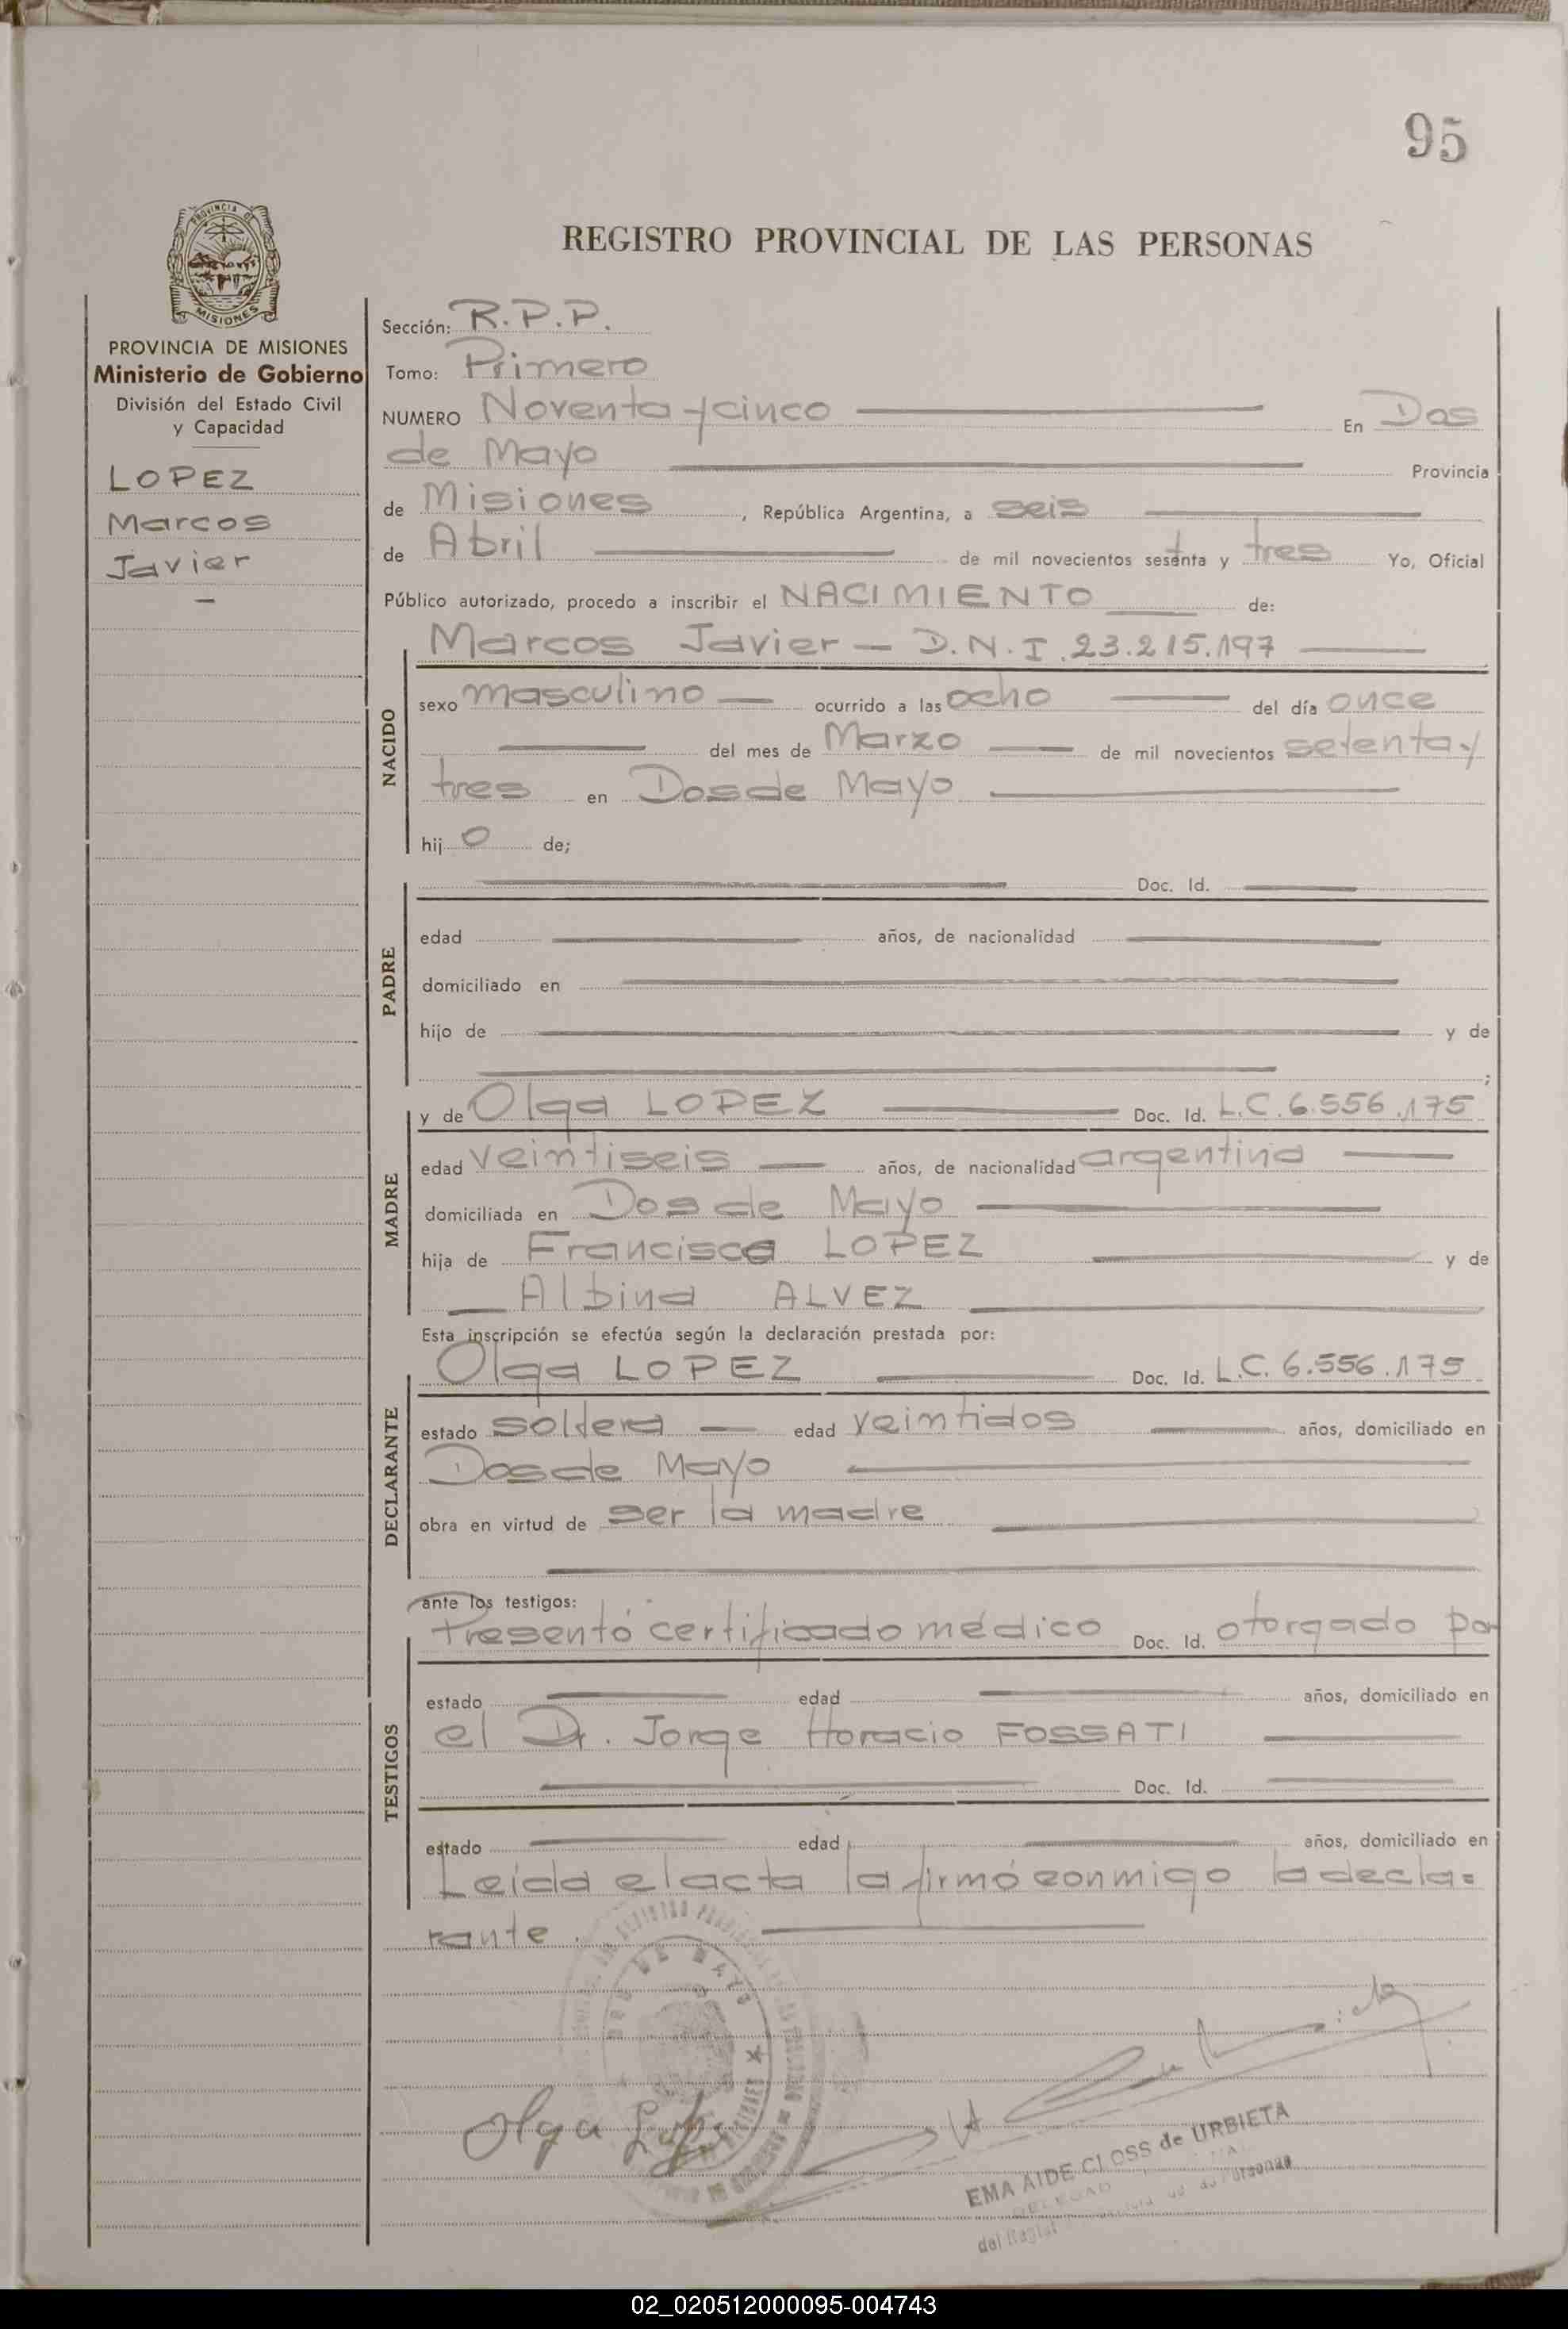 95
PROVINCIA DE
MISIONES
REGISTRO PROVINCIAL DE LAS PERSONAS
PROVINCIA DE MISIONES
Ministerio de Gobierno
División del Estado Civil
y Capacidad
LOPEZ
Marcos
Javier
Sección: R.P.P.
Tomo: Primero
NUMERO Noventa y cinco En Dos
de Mayo Provincia
de Misiones, República Argentina, a seis
de Abril de mil novecientos setenta y tres Yo, Oficial
Público autorizado, procedo a inscribir el NACIMIENTO de:
NACIDO
Marcos Javier — D.N.I. 23.215.197
sexo masculino — ocurrido a las ocho del día once
del mes de Marzo de mil novecientos setenta y
tres en Dos de Mayo
hijo de;
PADRE
Doc. Id.
edad años, de nacionalidad
domiciliado en
hijo de y de
;
MADRE
y de Olga LOPEZ Doc. Id. L.C. 6.556.175
edad veintiseis — años, de nacionalidad argentina
domiciliada en Dos de Mayo
hija de LOPEZ y de
Albina ALVEZ
Esta inscripción se efectúa según la declaración prestada por:
DECLARANTE
Olga LOPEZ Doc. Id. L.C. 6.556.175
estado soltera — edad veintidos años, domiciliado en
Dos de Mayo
obra en virtud de ser la madre
ante los testigos:
TESTIGOS
Presentó certificado médico Doc. Id. otorgado por
estado edad años, domiciliado en
el Dr. Jorge Horacio FOSSATI
Doc. Id.
estado edad años, domiciliado en
Leida el acta la firmó conmigo la decla=
rante.
DOS DE MAYO
Olga
EMA AIDE CLOSS de URBIETA
02_020512000095-004743